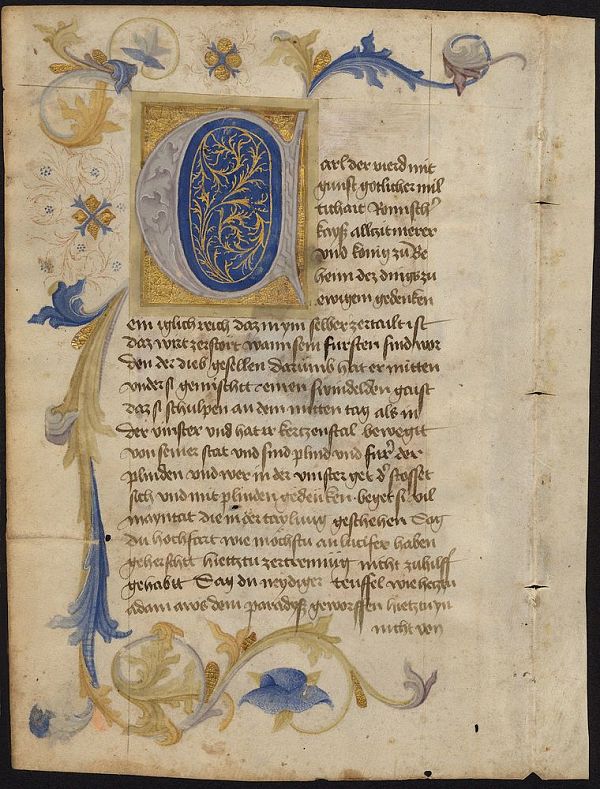 Carl der vierd mit
gunst gotlicher mil
tichait Romisch'
kayß allczit merer
vnd konig zu Be
heim dez dings zu
ewigem gedencken
ein iglich reich daz in ym selber zertailt ist
daz wirt zerstort wann sein fursten sind wor
den der dieb gesellen darumb hat er mitten
vnder si gemischtt einen swindelden gaist
daz si schulpen an dem mitten tag als in
der vinster vnd hat ir kertzenstal bewegit
von seiner stat vnd sind plind vnd furer der
plinden vnd wer in der vinster get d' stosset
sich vnd mit plinden gedencken beget si vil
mayntat die in der taylung geschehen Sag
du hochfart wie mochstu an lucifer haben
geherschtt hietztu zertrennung nicht zu hilff
gehabit Sag du neydiger teuffel wie hetztu
adam aws dem paradyß geworffen hietztu yn
nicht von